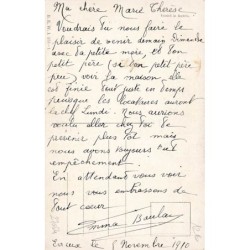 Ma chère Marie Thérèse
Voudrais tu nous faire le
plaisir de venir demain Dimanche
avec ta petite mère, et ton
petit père (si bon petit père
peu) voir la maison, elle
est finie tout juste en temps
puisque les locataires auront
la clef Lundi. Nous aurions
voulu aller chez toi te
prévenir plus tôt mais
nous avons toujours eu
empêchement.
En attendant nous vous
nous embrassons de
tout cœur
Emma
Evreux le 5 Novembre 1910